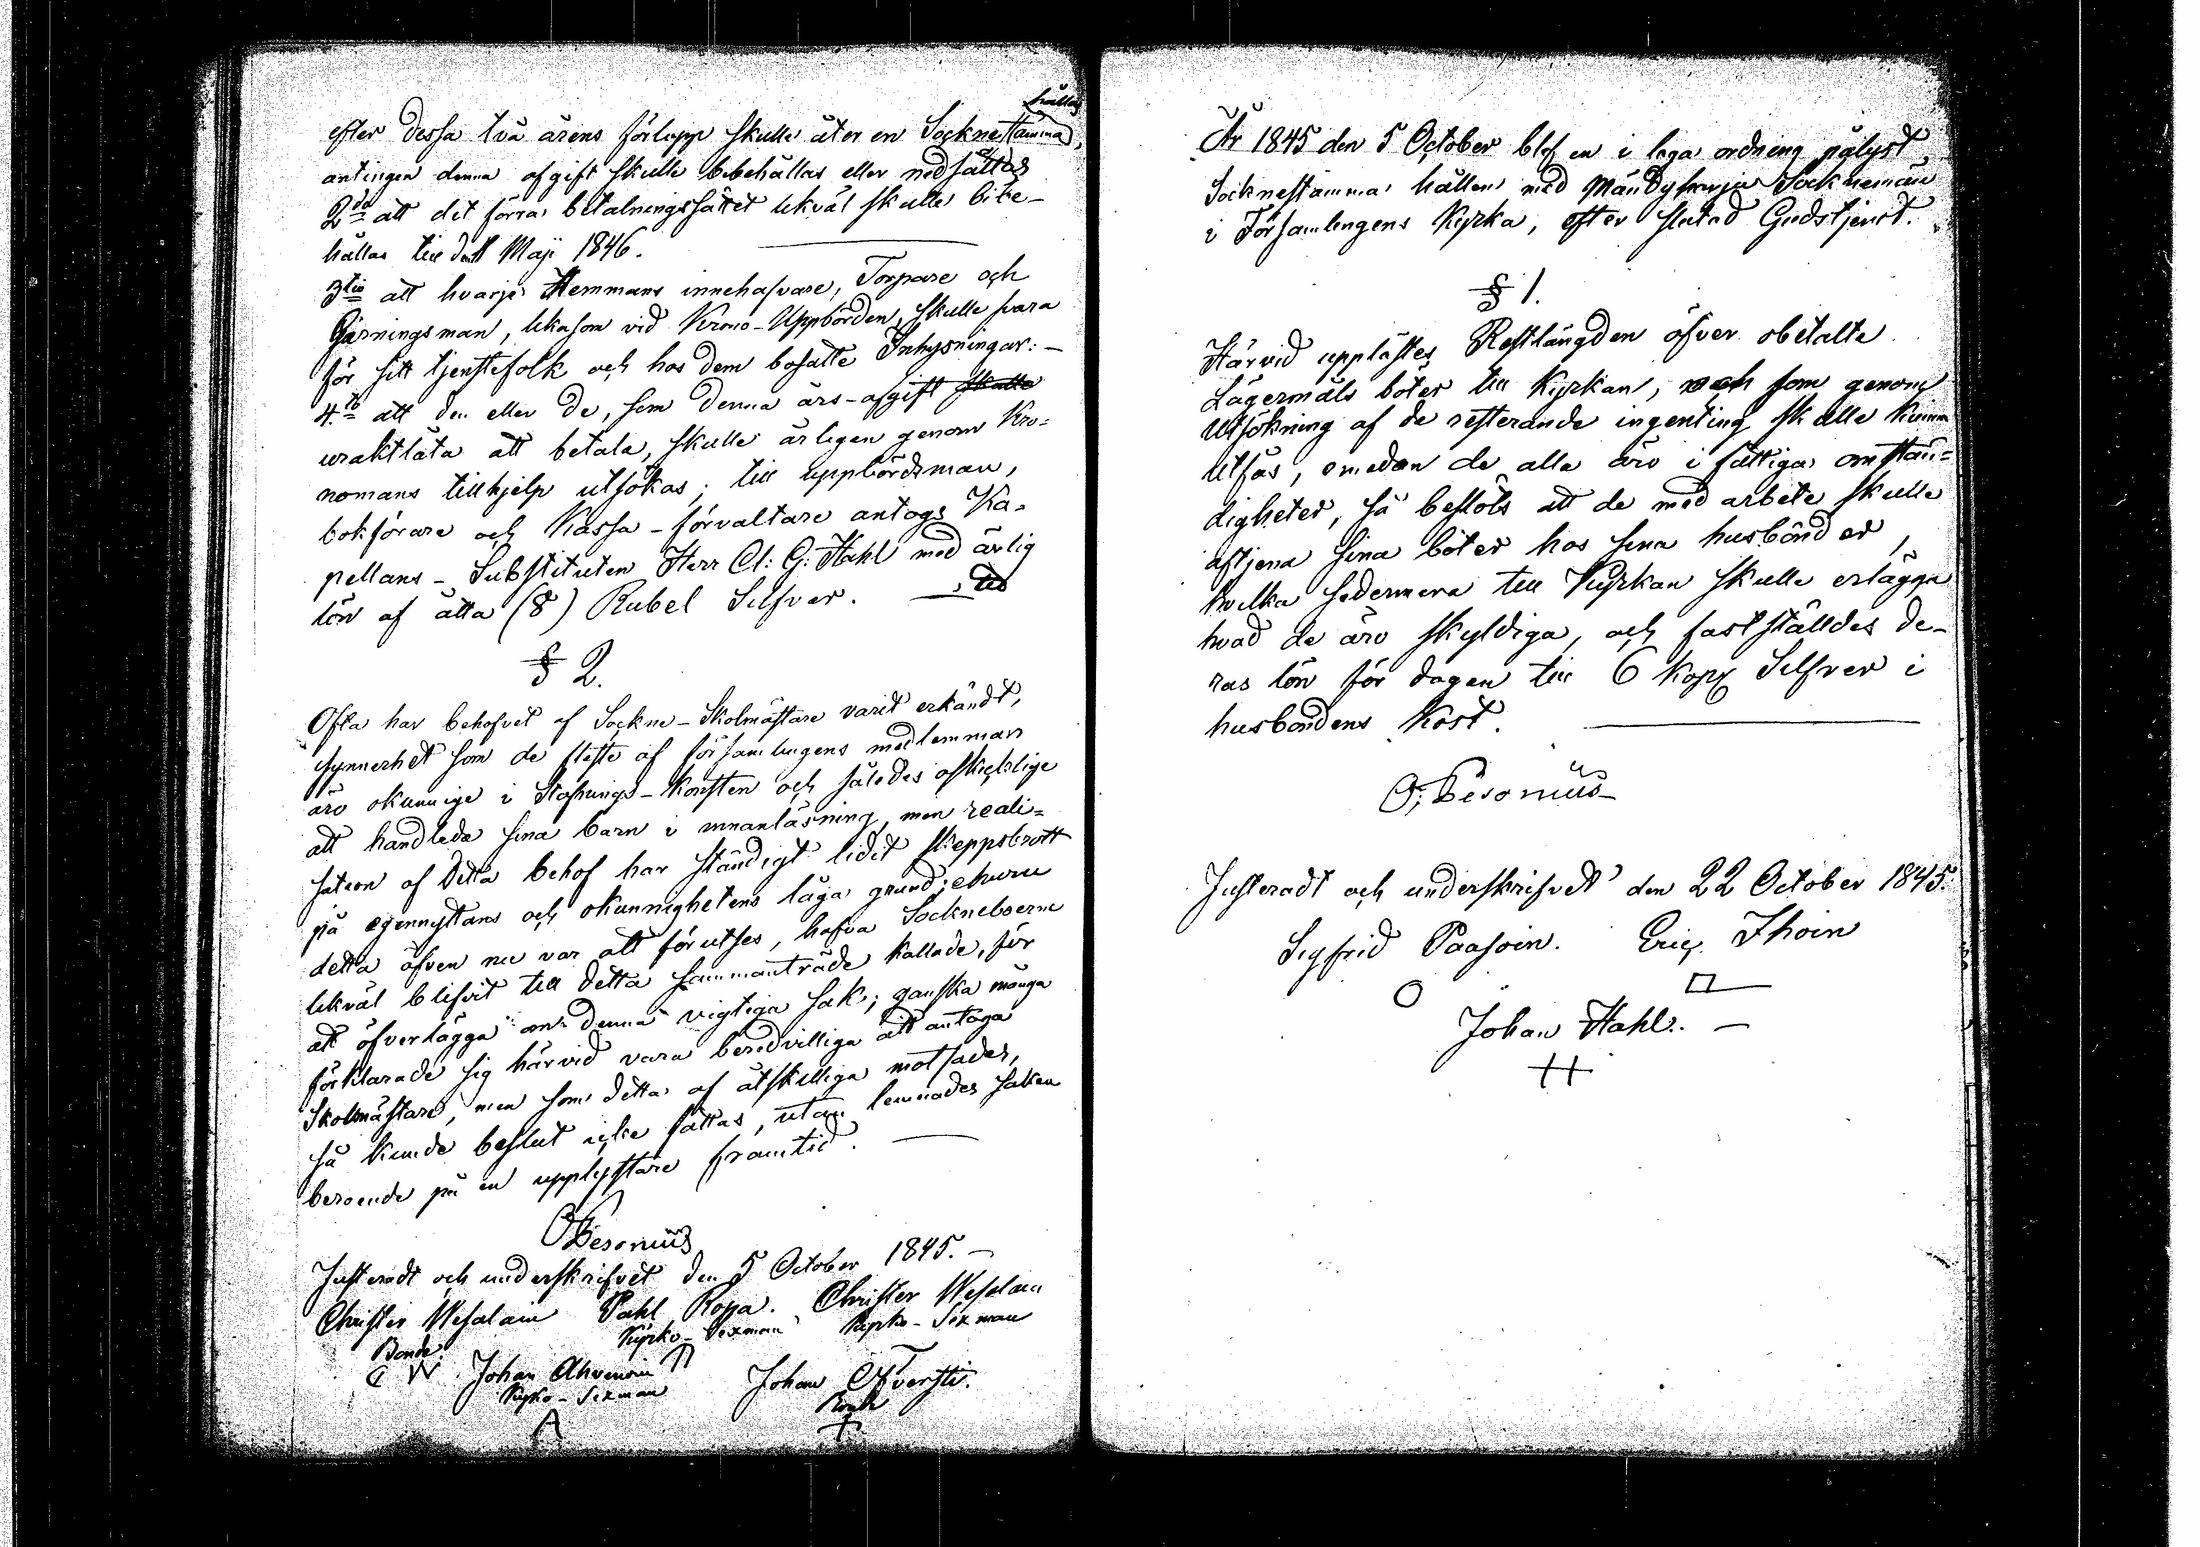 efter dessa två årens förlopp skulle åter en Socknestämma hållas,
antingen denna afgift skulle bebehållas eller nedsättas
2do att det förra betalningssättet likväl skulle bibe-
hållas till den 1 Maji 1846.
3tio att hvarje Hemmans innehafvare, Torpare och
Gärningsman, likasom vid Krono-Uppbörden, skulle svara
för sitt tjenstefolk och hos dem bosatte Inhysningar:-
4.to att den eller de, som denna års-afgift skulle
uraktlåta att betala, skulle årligen genom Kro-
nomans tillhjelp utsökas; till uppbördsman,
bokförare och Kassa-förvaltare antogs Ka-
pellans-Substituten Herr Cl: G: Hahl med årlig
lön af åtta (8) Rubel Silfver.
§ 2.
Ofta har behofvet af Sockne-Skolmästare varit erkändt,
synnerhet som de fleste af församlingens medlemmar
äro okunnige i Stafnings-konsten och således oskicklige
att handleda sina barn i innanläsning, men reali-
sation af detta behof har ständigt lidit skeppsbrott
på egennyttans och okunnighetens låga grund; ehuru
detta äfven nu var att förutses, hafva Sockneboerne
likväl blifvit till detta sammanträde kallade, för
att öfverlägga om denna vigtiga sak; ganska många
förklarade sig härvid vara beredvilliga att antaga
Skolmästare, men som detta af åtskilliga motsades,
så kunde beslut icke fattas, utan lemnades saken
beroende på en upplystare framtid.
O Besonius
Justeradt och underskrifvet den 5 October 1845.-
Christer Wesalain Pahl Roppa. Christer Wesalain
Bonde Kyrko-Sexman Kyrko-Sexman
C W Johan Ahvenain
Kyrko-Sexman
Johan
A
År 1845 den 5 October blef en i laga ordning pålyst
Socknestämma hållen med Mäntyharju Socknemän
i Församlingens Kyrka, efter slutad Gudstjenst.
§ 1.
Härvid upplästes Restlängden öfver obetalte
Lägermåls böter till Kyrkan, och som genom
Utsökning af de resterande ingenting skulle kunna
utfås, emedan de alla äro i fattiga omstän-
digheter, så beslöts att de med arbete skulle
aftjena sina böter hos sina husbönder,
hvilka sedermera till Kyrkan skulle erlägga
hvad de äro skyldiga, och fastställdes de-
ras lön för dagen till 6 kop Silfver i
husbondens Kost.
O; Besonius
Justeradt och underskrifvet den 22 October 1845.
Sigfrid Paasoin. Eric Ihoin
Johan Hahl.-